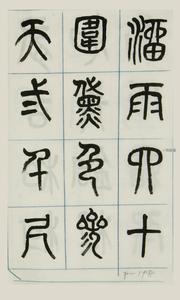 溜雨四十
圍黛色參
天弍千尺